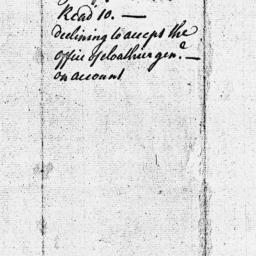 Read 10. —
declining to accept the
office of cloathier genl. —
on account